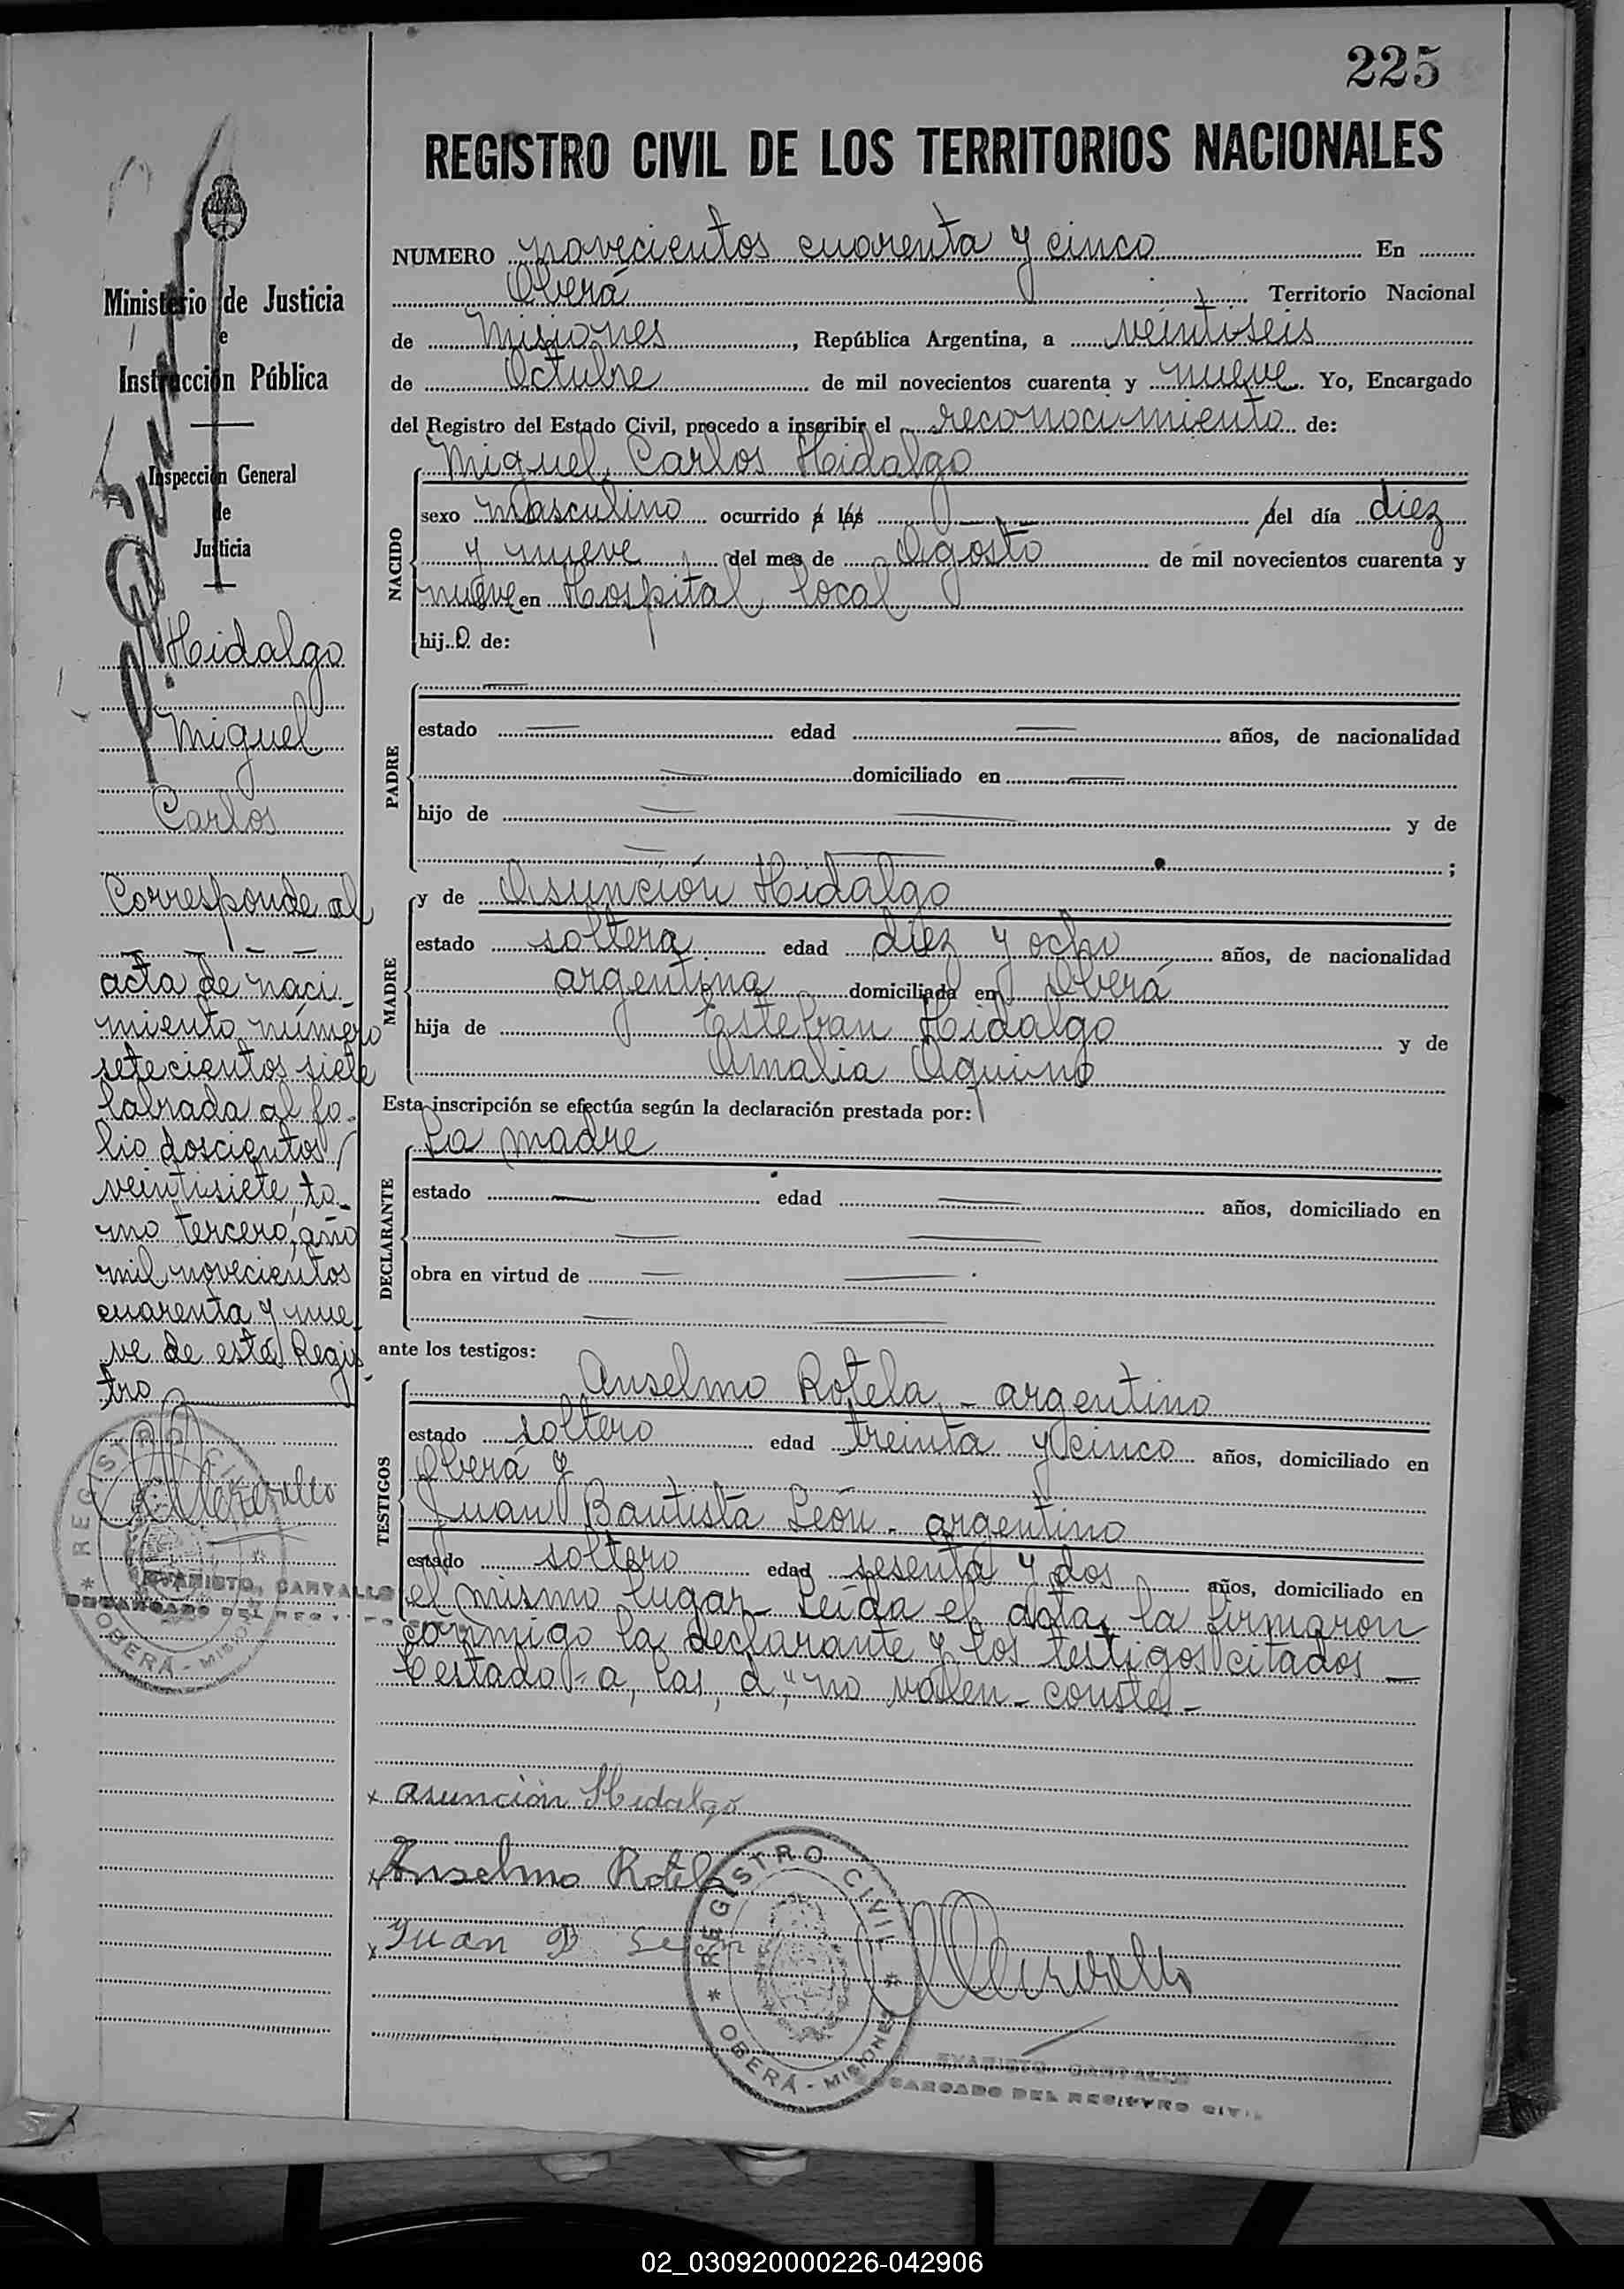 225
REGISTRO CIVIL DE LOS TERRITORIOS NACIONALES
Ministerio de Justicia
e
Instrucción Pública
Inspección General
de
Justicia
Hidalgo
Miguel
Carlos
Corresponde al
acta de naci-
miento número
setecientos siete
labrada al fo-
lio doscientos
veintisiete, to-
mo tercero, año
mil novecientos
cuarenta y nue-
ve de este Regis
tro
REGISTRO CIVIL
OBERÁ - MISIONES
EVARISTO CARVALLO
ENCARGADO DEL REGISTRO
NUMERO novecientos cuarenta y cinco En
Oberá Territorio Nacional
de Misiones, República Argentina, a veintiseis
de Octubre de mil novecientos cuarenta y nueve. Yo, Encargado
del Registro del Estado Civil, procedo a inscribir el reconocimiento de:
Miguel Carlos Hidalgo
NACIDO
sexo masculino ocurrido á las del día diez
y nueve del mes de Agosto de mil novecientos cuarenta y
nueve en Hospital local
hijo de:
PADRE
estado edad años, de nacionalidad
domiciliado en
hijo de y de
;
MADRE
y de Asunción Hidalgo
estado soltera edad diez y ocho años, de nacionalidad
argentina domiciliada en Oberá
hija de Esteban Hidalgo y de
Amalia Aquino
Esta inscripción se efectúa según la declaración prestada por:
DECLARANTE
La madre
estado edad años, domiciliado en
obra en virtud de
ante los testigos:
TESTIGOS
Anselmo Rotela - argentino
estado soltero edad treinta y cinco años, domiciliado en
Oberá y
Juan Bautista León - argentino
estado soltero edad sesenta y dos años, domiciliado en
el mismo lugar - Leída el acta, la firmaron
conmigo la declarante y los testigos citados -
Testado "a, las, d," no valen - conste -
x Asunción Hidalgo
x Anselmo Rotela
x Juan B León
REGISTRO CIVIL
OBERÁ - MISIONES
EVARISTO CARVALLO
ENCARGADO DEL REGISTRO CIVIL
02_030920000226-042906